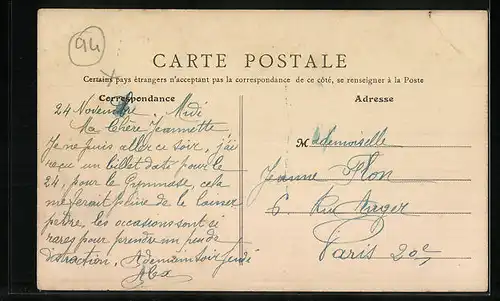 94
CARTE POSTALE
Certains pays étrangers n'acceptant pas la correspondance de ce côté, se renseigner à la Poste
Correspondance
Adresse
24 Novembre. Midi
Ma Chère Jeannette
Je ne puis aller ce soir, j'ai
reçu un billet daté pour le
24, pour le Gymnase, cela
me ferait peine de le laisser
perdre, les occasions sont si
rares pour prendre un peu de
distraction, A demain soir Jeudi
Mademoiselle
Jeanne Flon
6. Rue
Paris 20e.